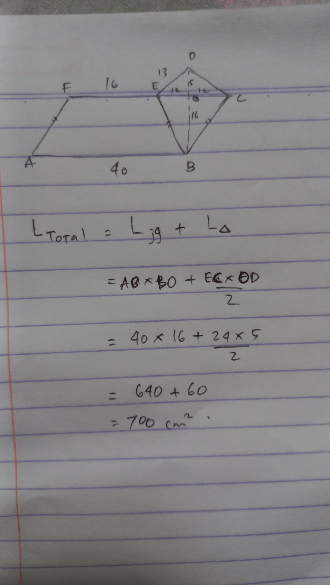 D
13
F 16 E 12 5 12 C
O
16
A 40 B
L Total = L jg + L Δ
= AB × BO + EC × OD / 2
= 40 × 16 + 24 × 5 / 2
= 640 + 60
= 700 cm² .